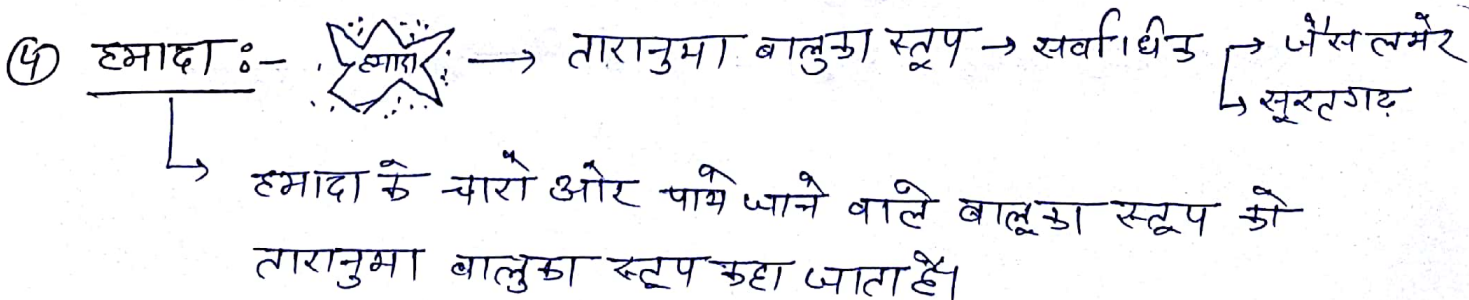 ④ हमादा :- हमादा → तारानुमा बालुका स्तूप → सर्वाधिक → जैसलमेर
↳ सूरतगढ़
↳ हमादा के चारों ओर पाये जाने वाले बालूका स्तूप को
तारानुमा बालुका स्तूप कहा जाता है।